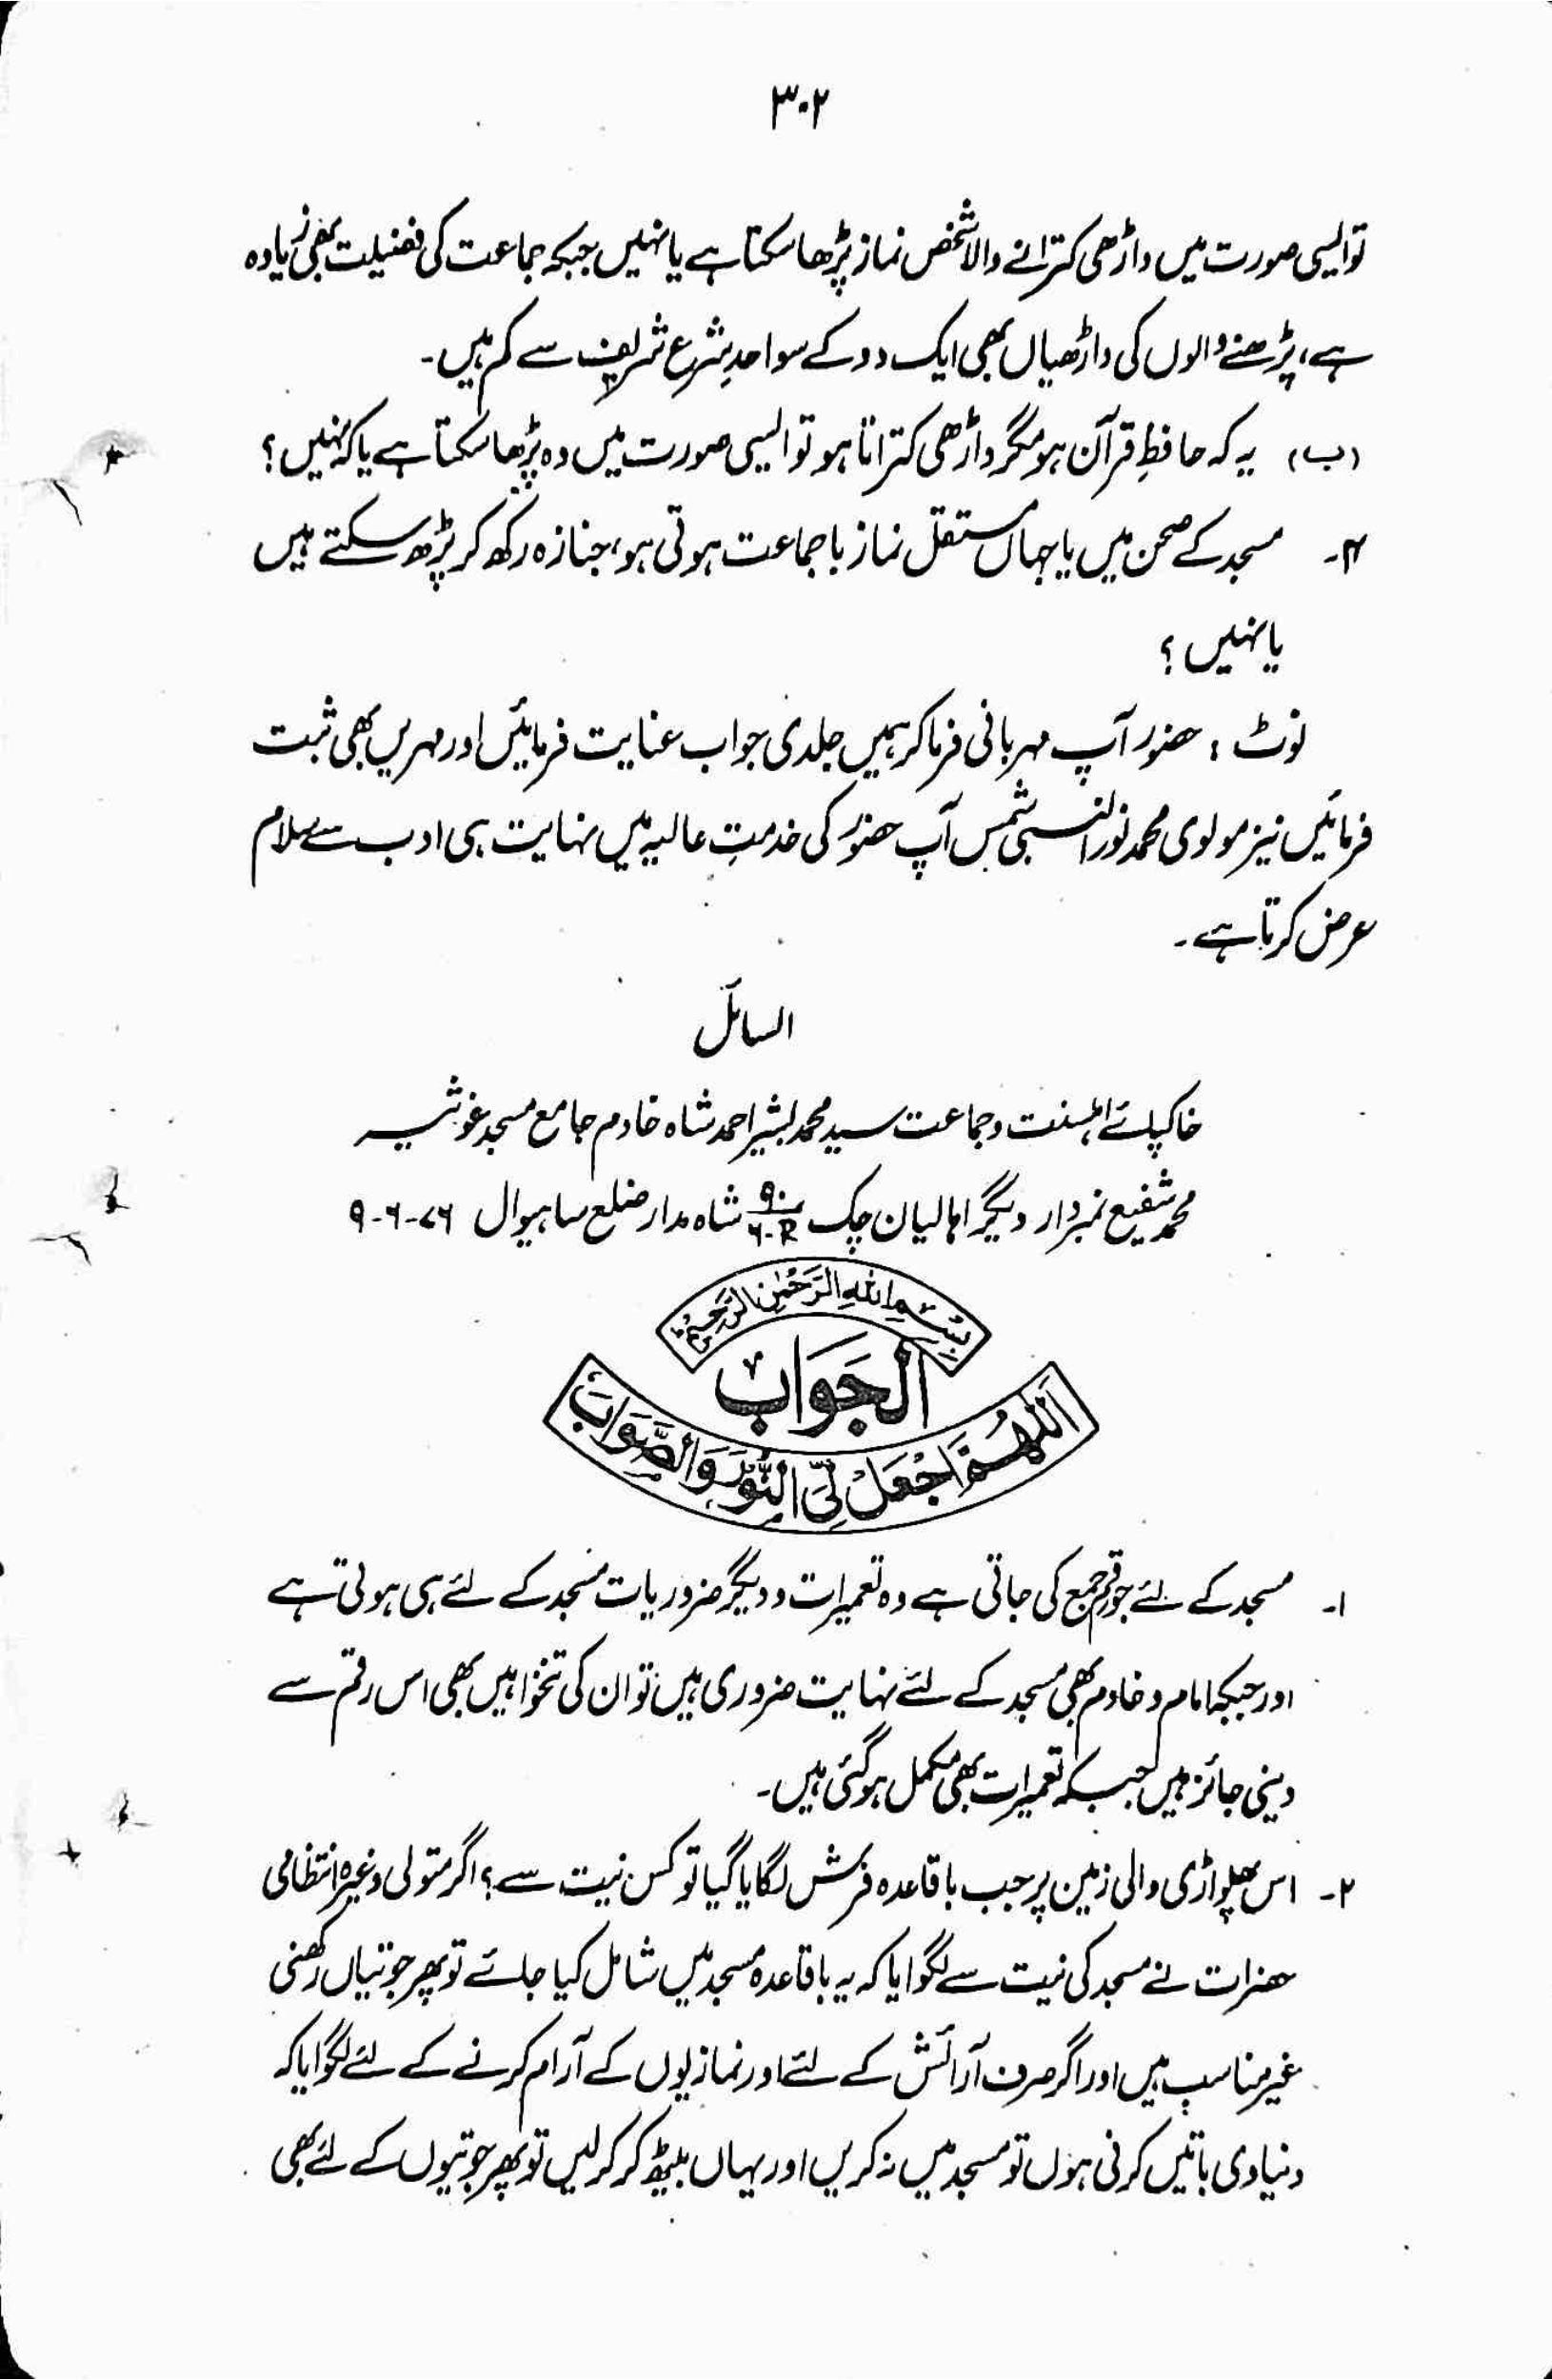 ۳۰۲
تو ایسی صورت میں داڑھی کترانے والا شخص نماز پڑھا سکتا ہے یا نہیں جبکہ جماعت کی فضیلت بھی زیادہ
ہے، پڑھنے والوں کی داڑھیاں بھی ایک دو کے سوا حدِ شرع شریف سے کم ہیں۔
(ب) یہ کہ حافظِ قرآن ہو مگر داڑھی کتراتا ہو تو ایسی صورت میں وہ پڑھا سکتا ہے یا کہ نہیں؟
۴۔ مسجد کے صحن میں یا جہاں مستقل نماز با جماعت ہوتی ہو، جنازہ رکھ کر پڑھ سکتے ہیں
یا نہیں؟
نوٹ: حضور آپ مہربانی فرما کر ہمیں جلدی جواب عنایت فرمائیں اور مہریں بھی ثبت
فرمائیں نیز مولوی محمد نور النبی شمس آپ حضور کی خدمتِ عالیہ میں نہایت ہی ادب سے سلام
عرض کرتا ہے۔
السائل
خاکپائے اہلسنت و جماعت سید محمد بشیر احمد شاہ خادم جامع مسجد غوثیہ
محمد شفیع نمبردار دیگر اہالیان چک ۹۰/۶-R شاہ مدار ضلع ساہیوال ۷۶-۶-۹
بِسْمِ اللّٰهِ الرَّحْمٰنِ الرَّحِيْمِ
اَلْجَوَابُ
اَللّٰهُمَّ اجْعَلْ لِّیَ النُّوْرَ وَالصَّوَابَ
۱۔ مسجد کے لئے جو رقم جمع کی جاتی ہے وہ تعمیرات و دیگر ضروریات مسجد کے لئے ہی ہوتی ہے
اور جبکہ امام و خادم بھی مسجد کے لئے نہایت ضروری ہیں تو ان کی تنخواہیں بھی اس رقم سے
دینی جائز ہیں جبکہ تعمیرات بھی مکمل ہو گئی ہیں۔
۲۔ اس پھلواڑی والی زمین پر جب باقاعدہ فرش لگایا گیا تو کس نیت سے؟ اگر متولی وغیرہ انتظامی
حضرات نے مسجد کی نیت سے لگوایا کہ یہ باقاعدہ مسجد میں شامل کیا جائے تو پھر جوتیاں رکھنی
غیر مناسب ہیں اور اگر صرف آرائش کے لئے اور نمازیوں کے آرام کرنے کے لئے لگوایا کہ
دنیاوی باتیں کرنی ہوں تو مسجد میں نہ کریں اور یہاں بیٹھ کر کر لیں تو پھر جوتیوں کے لئے بھی